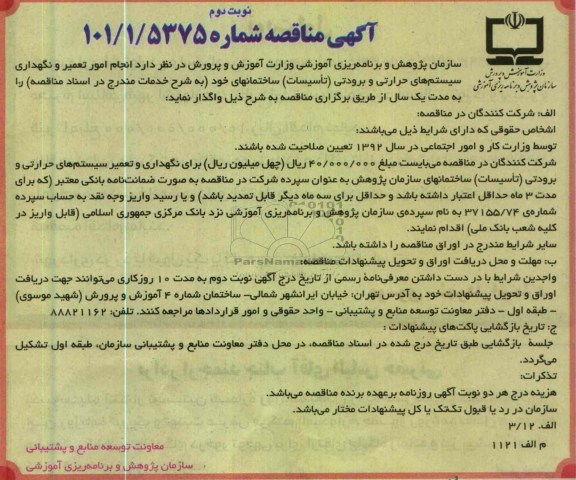 نوبت دوم
آگهی مناقصه شماره ۱۰۱/۱/۵۳۷۵
وزارت آموزش و پرورش
سازمان پژوهش و برنامه‌ریزی آموزشی
سازمان پژوهش و برنامه‌ریزی آموزشی وزارت آموزش و پرورش در نظر دارد انجام امور تعمیر و نگهداری
سیستم‌های حرارتی و برودتی (تأسیسات) ساختمانهای خود (به شرح خدمات مندرج در اسناد مناقصه) را
به مدت یک سال از طریق برگزاری مناقصه به شرح ذیل واگذار نماید:
الف: شرکت کنندگان در مناقصه:
اشخاص حقوقی که دارای شرایط ذیل می‌باشند:
توسط وزارت کار و امور اجتماعی در سال ۱۳۹۲ تعیین صلاحیت شده باشند.
شرکت کنندگان در مناقصه می‌بایست مبلغ ۴۰/۰۰۰/۰۰۰ ریال (چهل میلیون ریال) برای نگهداری و تعمیر سیستم‌های حرارتی و
برودتی (تأسیسات) ساختمانهای سازمان پژوهش به عنوان سپرده شرکت در مناقصه به صورت ضمانت‌نامه بانکی معتبر (که برای
مدت ۳ ماه حداقل اعتبار داشته باشد و حداقل برای سه ماه دیگر قابل تمدید باشد) و یا رسید واریز وجه نقد به حساب سپرده
شماره‌ی ۳۷۱۵۵/۷۴ به نام سپرده‌ی سازمان پژوهش و برنامه‌ریزی آموزشی نزد بانک مرکزی جمهوری اسلامی (قابل واریز در
کلیه شعب بانک ملی) اقدام نمایند.
سایر شرایط مندرج در اوراق مناقصه را داشته باشد.
ب: مهلت و محل دریافت اوراق و تحویل پیشنهادات مناقصه:
واجدین شرایط با در دست داشتن معرفی‌نامهٔ رسمی از تاریخ درج آگهی نوبت دوم به مدت ۱۰ روزکاری می‌توانند جهت دریافت
اوراق و تحویل پیشنهادات خود به آدرس تهران: خیابان ایرانشهر شمالی- ساختمان شماره ۴ آموزش و پرورش (شهید موسوی)
- طبقه اول - دفتر معاونت توسعه منابع و پشتیبانی - واحد حقوقی و امور قراردادها مراجعه کنند. تلفن: ۸۸۸۲۱۱۶۲
ج: تاریخ بازگشایی پاکت‌های پیشنهادات :
جلسهٔ بازگشایی طبق تاریخ درج شده در اسناد مناقصه، در محل دفتر معاونت منابع و پشتیبانی سازمان، طبقه اول تشکیل
می‌گردد.
تذکرات:
هزینه درج هر دو نوبت آگهی روزنامه برعهده برنده مناقصه می‌باشد.
سازمان در رد یا قبول تک‌تک یا کل پیشنهادات مختار می‌باشد.
الف. ۳/۱۲
م الف ۱۱۲۱
معاونت توسعه منابع و پشتیبانی
سازمان پژوهش و برنامه‌ریزی آموزشی